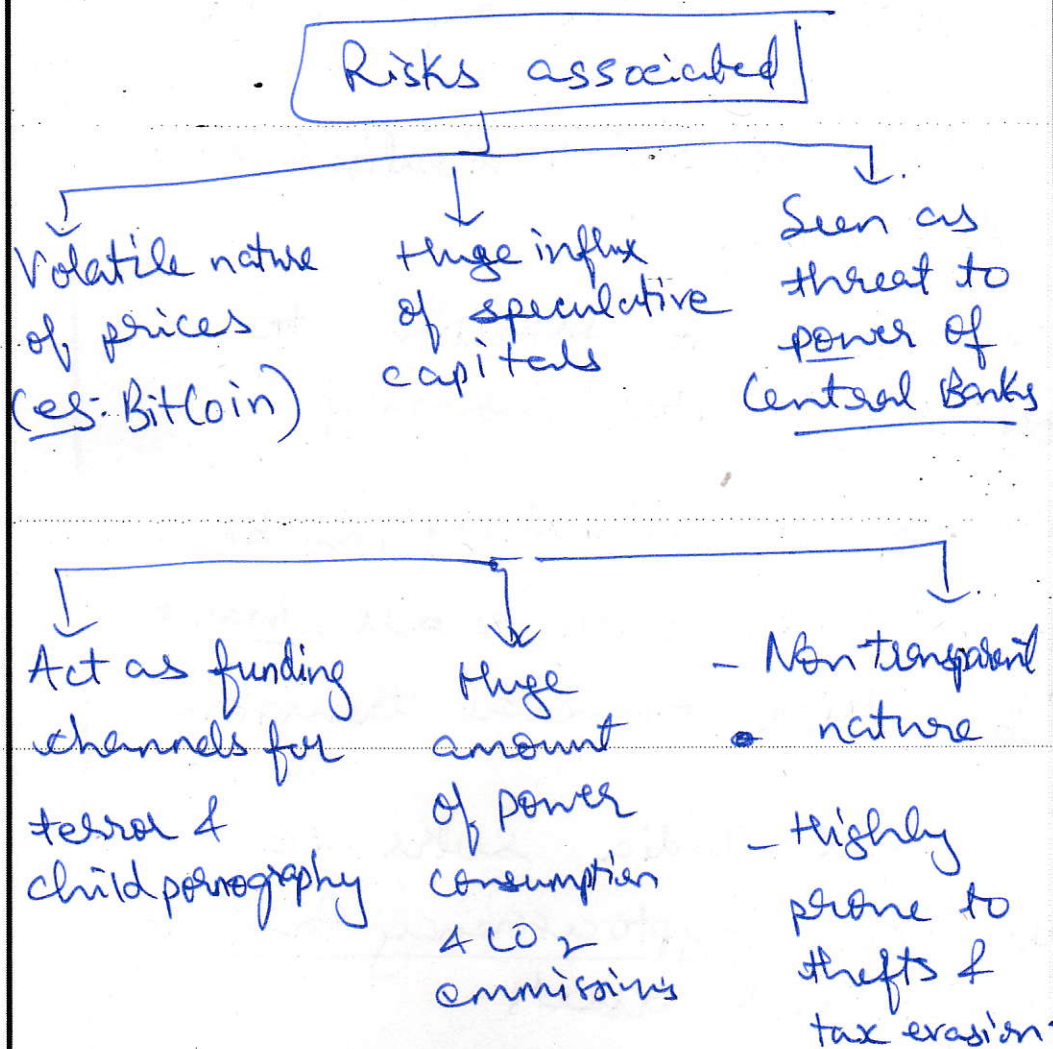 Risks associated
Volatile nature
of prices
(eg: BitCoin)
Huge influx
of speculative
capitals
Seen as
threat to
power of
Central Banks
Act as funding
channels for
terror &
child pornography
Huge
amount
of power
consumption
& CO2
emmissions
- Non transparent
nature
- Highly
prone to
thefts &
tax evasion.